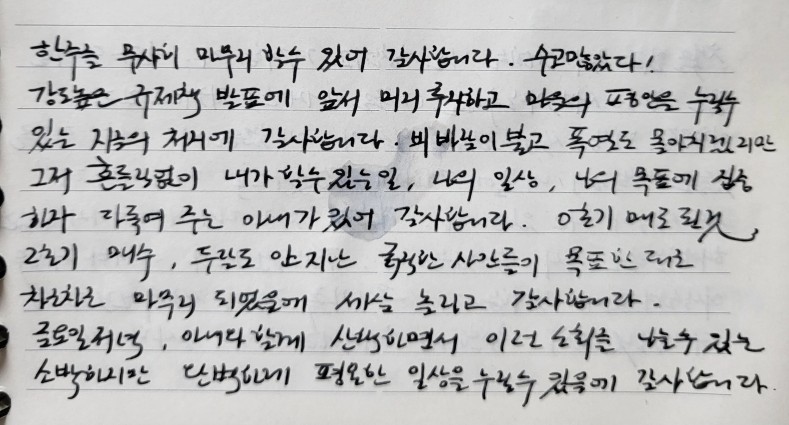 한주를 무사히 마무리 할수 있어 감사합니다. 수고많았다!
강도높은 규제책 발표에 앞서 미리 투자하고 마음의 평안을 누릴수
있는 지금의 처지에 감사합니다. 비바람이 불고 폭염도 몰아치겠지만
그저 흔들림없이 내가 할수 있는일, 나의 일상, 나의 목표에 집중
하자 다독여 주는 아내가 있어 감사합니다. 1호기 매도 된것,
2호기 매수, 두달도 안지난 굵직한 사건들이 목표한 대로
차근차근 마무리 되었음에 새삼 놀라고 감사합니다.
금요일저녁, 아내와 함께 산책하면서 이런 소회를 나눌수 있는
소박하지만 단백하게 평온한 일상을 누릴수 있음에 감사합니다.